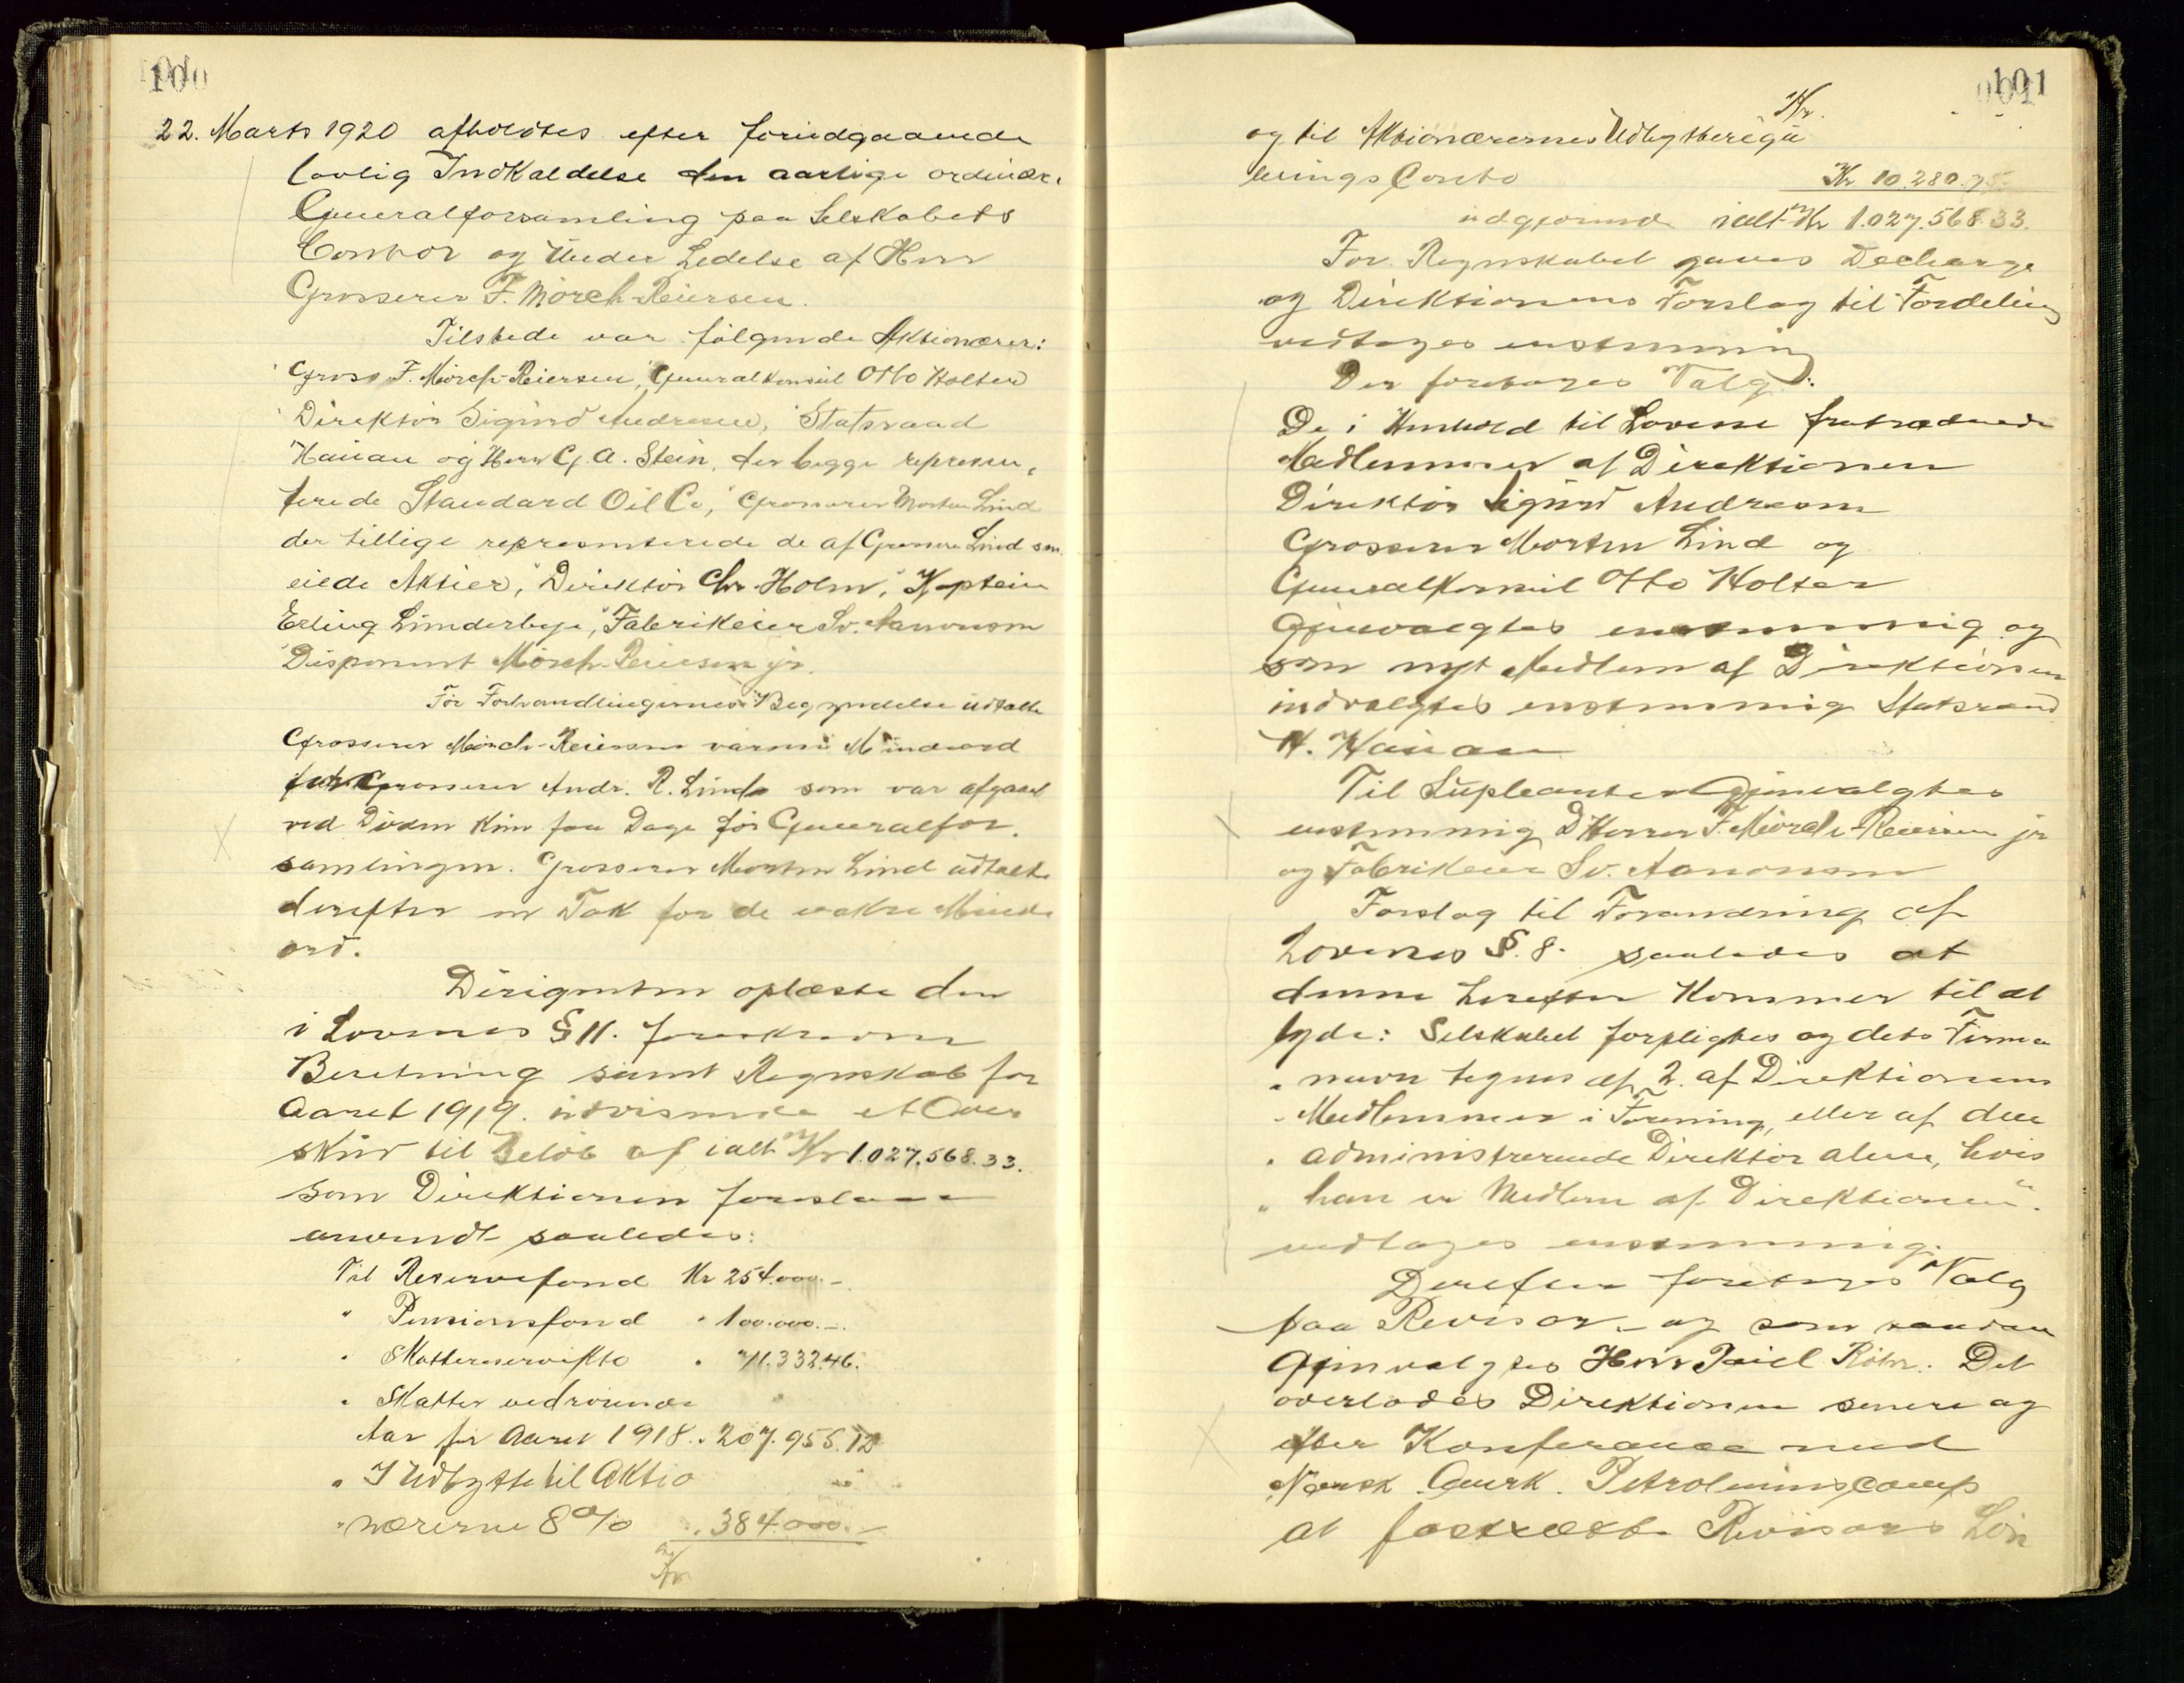 100
22. Marts 1920 afholdtes efter forudgaaende
lovlig Indkaldelse den aarlige ordinære
Generalforsamling paa Selskabets
Contor og Under Ledelse af Herr
Grosserer F. Mørch-Reiersen.
Tilstede var følgende Aktionærer:
Gross F. Mørch-Reiersen, Generalkonsul Otto Holter
Direktør Sigurd Andresen, Statsraad
Hauan og Herr G. A. Stein, der begge represen,
terede Standard Oil Co, Grosserer Morten Lind
der tillige representerede de af Grosserer Lind sen.
eiede Aktier, Direktør Chr. Holm, Kaptein
Erling Linderbye, Fabrikeier Sv. Aanonsen
Disponent Mørch-Reiersen jr.
Før Forhandlingernes Begyndelse udtalte
Grosserer Mørch-Reiersen varme Mindeord
Grosserer Andr. R. Lind som var afgaaet
ved Døden kun faa Dage før Generalfor.
samlingen. Grosserer Morten Lind udtalte
derefter en Tak for de vakre Minde
ord.
Dirigenten oplæste den
i Lovenes § 11. foreskrevne
Beretning samt Regnskab for
Aaret 1919. udvisende et Over
skud til Beløb af ialt Kr 1.027.568.33.
som Direktionen foreslaar
anvendt saaledes:
Til Reservefond Kr 254.000.-
" Pensionsfond " 100.000.-
" Skattereservekto " 71.332.46.
" Skatter vedrørende
Aar før Aaret 1918. " 207.955.12
" I Udbytte til Aktio
" nærerne 8% " 384.000.-
Kr
101
Kr.
og til Aktionærernes Udbytteregu
lerings Conto Kr 10.280.75.
udgjørende ialt Kr 1.027.568.33.
For Regnskabet gaves Decharge
og Direktionens Forslag til Fordeling
vedtoges enstemmig
Der foretoges Valg:
De i Henhold til Lovene fratrædende
Medlemmer af Direktionen
Direktør Sigurd Andresen
Grosserer Morten Lind og
Generalkonsul Otto Holter
Gjenvalgtes enstemmig og
som nyt Medlem af Direktionen
indvalgtes enstemmig Statsraad
H. Hauan
Til Supleanter Gjenvalgtes
enstemmig D'Herrer F. Mørch-Reiersen jr
og Fabrikeier Sv. Aanonsen
Forslag til Forandring af
Lovenes §. 8. saaledes at
denne herefter kommer til at
lyde: Selskabet forpligtes og dets Firma
" navn tegnes af 2. af Direktionens
" Medlemmer i Forening, eller af den
" administrerende Direktør alene, hvis
" han er Medlem af Direktionen".
vedtoges enstemmig.
Derefter foretoges Valg
paa Revisor - og som saadan
Gjenvalgtes Herr Paul Röhr. Det
overlodes Direktionen senere og
efter Konferance med
Norsk. Amrk. Petroleumscomp
at fastsætte Revisors Løn